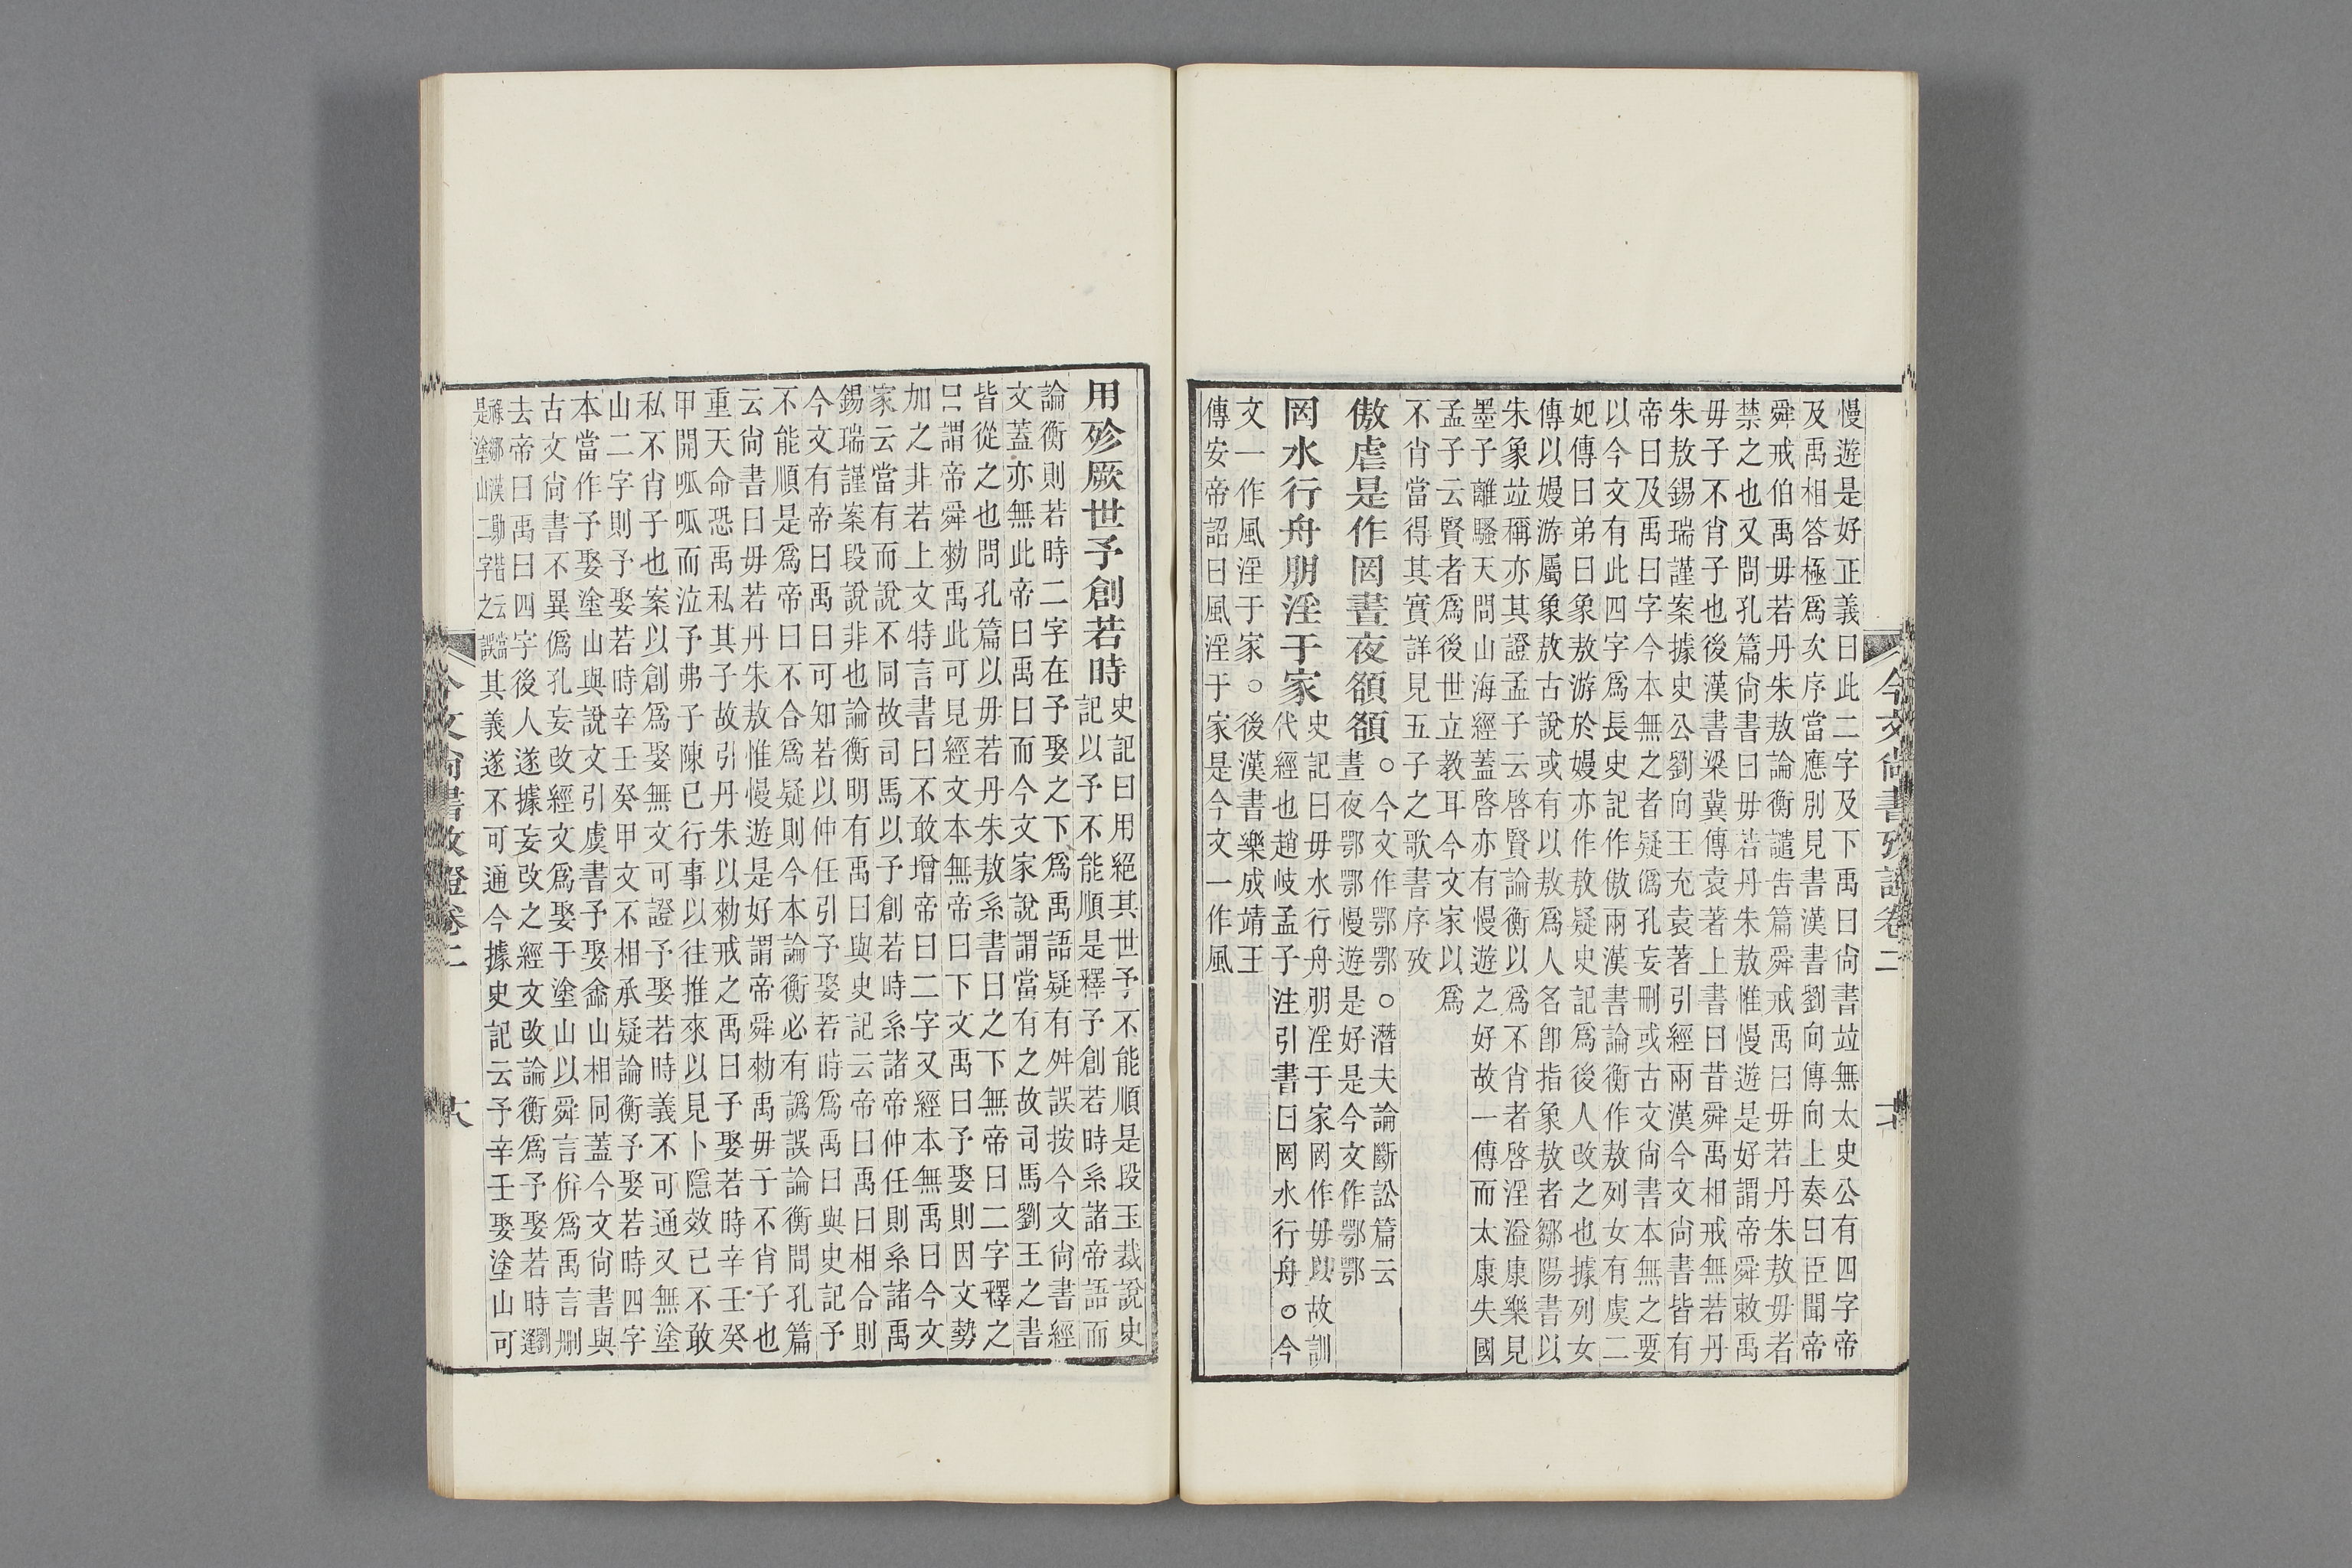 慢遊是好正義曰此二字及下禹曰尙書竝無太史公有四字帝
及禹相答極爲次序當應別見書漢書劉向傳向上奏曰臣聞帝
舜戒伯禹毋若丹朱敖論衡譴告篇舜戒禹曰毋若丹朱敖毋者
禁之也又問孔篇尙書曰毋若丹朱敖惟慢遊是好謂帝舜敕禹
毋子不肖子也後漢書梁冀傳袁著上書曰昔舜禹相戒無若丹
朱敖錫瑞謹案據史公劉向王充袁著引經兩漢今文尙書皆有
帝曰及禹曰字今本無之者疑僞孔妄刪或古文尙書本無之要
以今文有此四字爲長史記作傲兩漢書論衡作敖列女有虞二
妃傳曰弟曰象敖游於嫚亦作敖疑史記爲後人改之也據列女
傳以嫚游屬象敖古說或有以敖爲人名卽指象敖者鄒陽書以
朱象竝稱亦其證孟子云啓賢論衡以爲不肖者啓淫溢康樂見
墨子離騷天問山海經蓋啓亦有慢遊之好故一傳而太康失國
孟子云賢者爲後世立教耳今文家以爲
不肖當得其實詳見五子之歌書序攷
傲虐是作罔晝夜頟頟○今文作鄂鄂○潛夫論斷訟篇云
晝夜鄂鄂慢遊是好是今文作鄂鄂
罔水行舟朋淫于家史記曰毋水行舟朋淫于家罔作毋以故訓
代經也趙岐孟子注引書曰罔水行舟○今
文一作風淫于家○後漢書樂成靖王
傳安帝詔曰風淫于家是今文一作風
今文尙書攷證卷二
十七
用殄厥世予創若時史記曰用絕其世予不能順是段玉裁說史
記以予不能順是釋予創若時系諸帝語而
論衡則若時二字在予娶之下爲禹語疑有舛誤按今文尙書經
文蓋亦無此帝曰禹曰而今文家說謂當有之故司馬劉王之書
皆從之也問孔篇以毋若丹朱敖系書曰之下無帝曰二字釋之
曰謂帝舜勑禹此可見經文本無帝曰下文禹曰予娶則因文勢
加之非若上文特言書曰不敢增帝曰二字又經本無禹曰今文
家云當有而說不同故司馬以予創若時系諸帝仲任則系諸禹
錫瑞謹案段說非也論衡明有禹曰與史記云帝曰禹曰相合則
今文有帝曰禹曰可知若以仲任引予娶若時爲禹曰與史記予
不能順是爲帝曰不合爲疑則今本論衡必有譌誤論衡問孔篇
云尙書曰毋若丹朱敖惟慢遊是好謂帝舜勑禹毋子不肖子也
重天命恐禹私其子故引丹朱以勑戒之禹曰予娶若時辛壬癸
甲開呱呱而泣予弗子陳已行事以往推來以見卜隱效已不敢
私不肖子也案以創爲娶無文可證予娶若時義不可通又無塗
山二字則予娶若時辛壬癸甲文不相承疑論衡予娶若時四字
本當作予娶塗山與說文引虞書予娶嵞山相同蓋今文尙書與
古文尙書不異僞孔妄改經文爲娶于塗山以舜言倂爲禹言刪
去帝曰禹曰四字後人遂據妄改之經文改論衡爲予娶若時劉逢
祿鄒漢勛皆云當
是塗山二字之誤其義遂不可通今據史記云予辛壬娶塗山可
今文尙書攷證卷二
十八